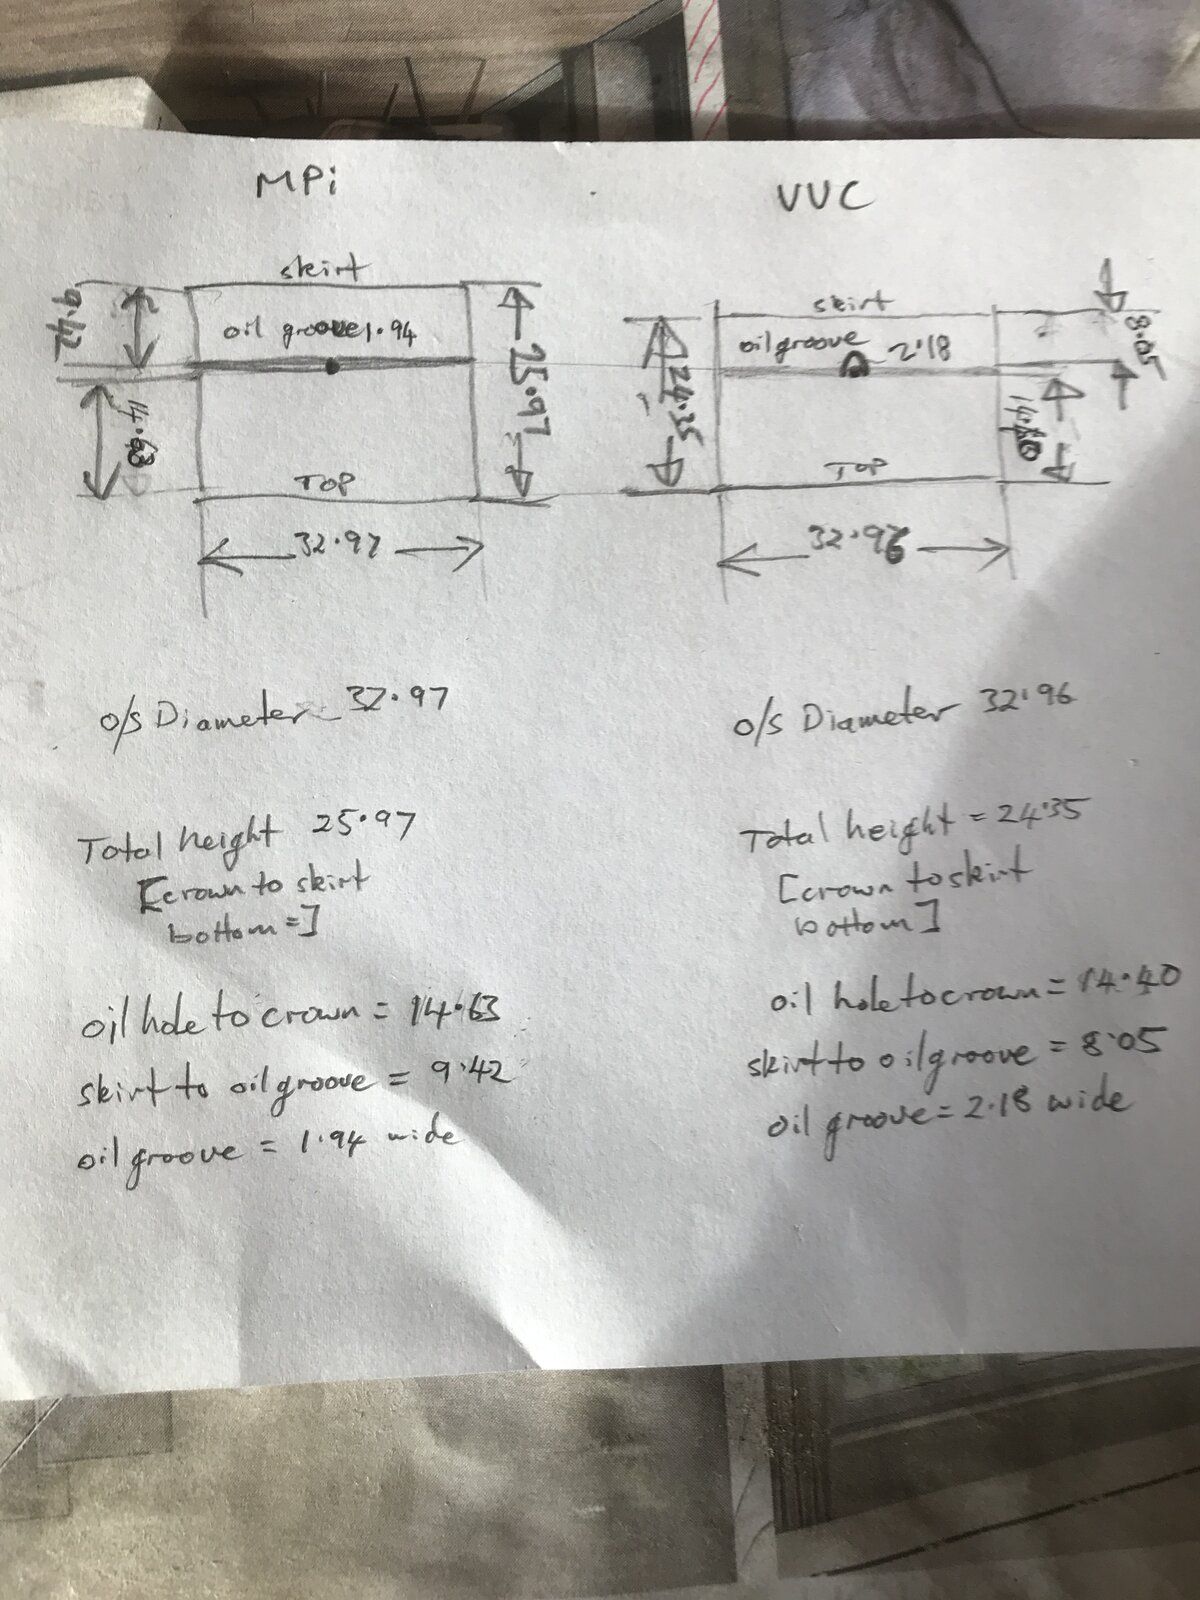 MPi
VVC
skirt
9.42
oil groove 1.94
25.97
14.63
TOP
32.97
skirt
oil groove 2.18
8.05
24.35
14.40
TOP
32.96
o/s Diameter 32.97
Total height 25.97
[crown to skirt
bottom=]
oil hole to crown = 14.63
skirt to oil groove = 9.42
oil groove = 1.94 wide
o/s Diameter 32.96
Total height = 24.35
[crown to skirt
bottom]
oil hole to crown = 14.40
skirt to oil groove = 8.05
oil groove = 2.18 wide